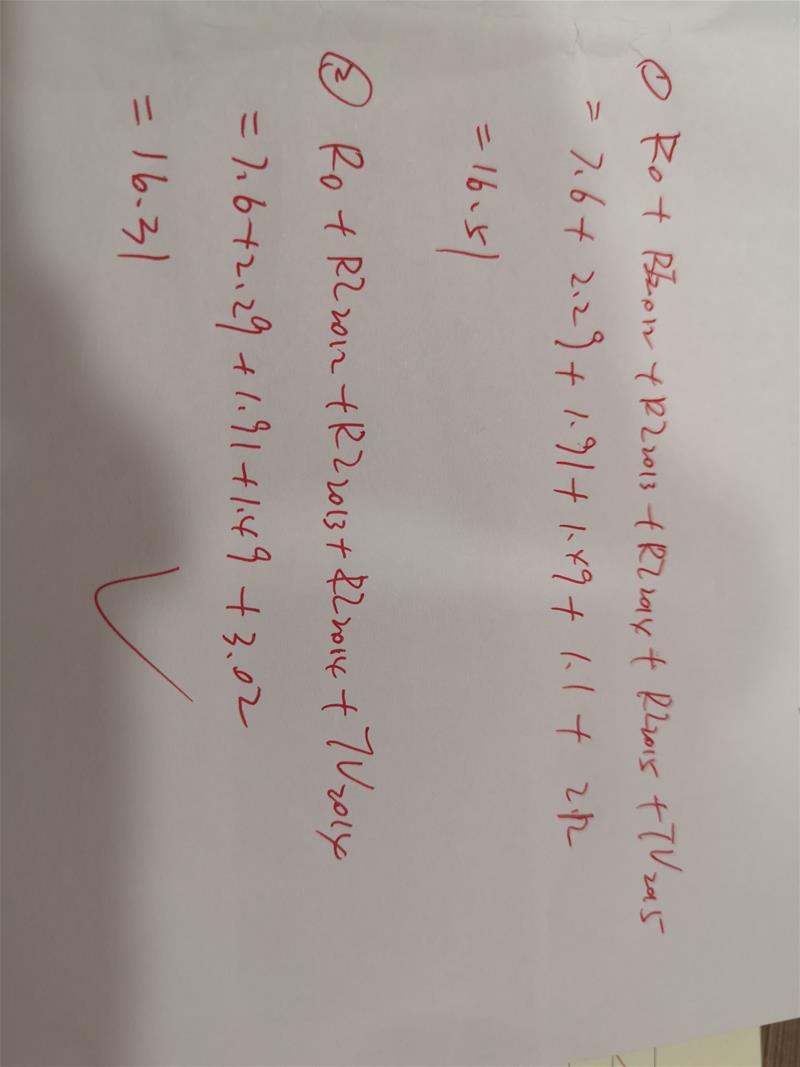 ① R0 + RI2012 + RI2013 + RI2014 + RI2015 + TV2015
= 7.6 + 2.29 + 1.91 + 1.49 + 1.1 + 2.12
= 16.51
② R0 + RI2012 + RI2013 + RI2014 + TV2014
= 7.6 + 2.29 + 1.91 + 1.49 + 3.02
= 16.31